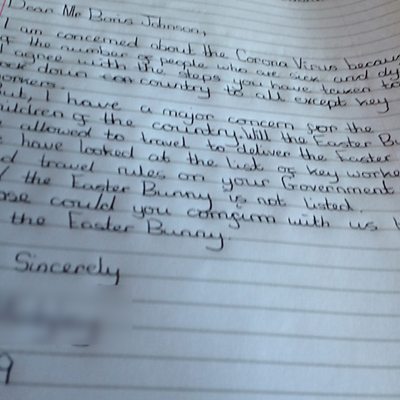 Dear Mr Boris Johnson,
I am concerned about the Corona Virus because
of the number of people who are sick and
I agree with the steps you have taken to
lock down country to all except key
workers.
But, I have a major concern for the
children of the country. Will the Easter
allowed to travel to deliver the Easter
have looked at the list of key
travel rules on your Government
the Easter Bunny is not listed.
could you comfirm with us
the Easter Bunny.
Sincerely
9